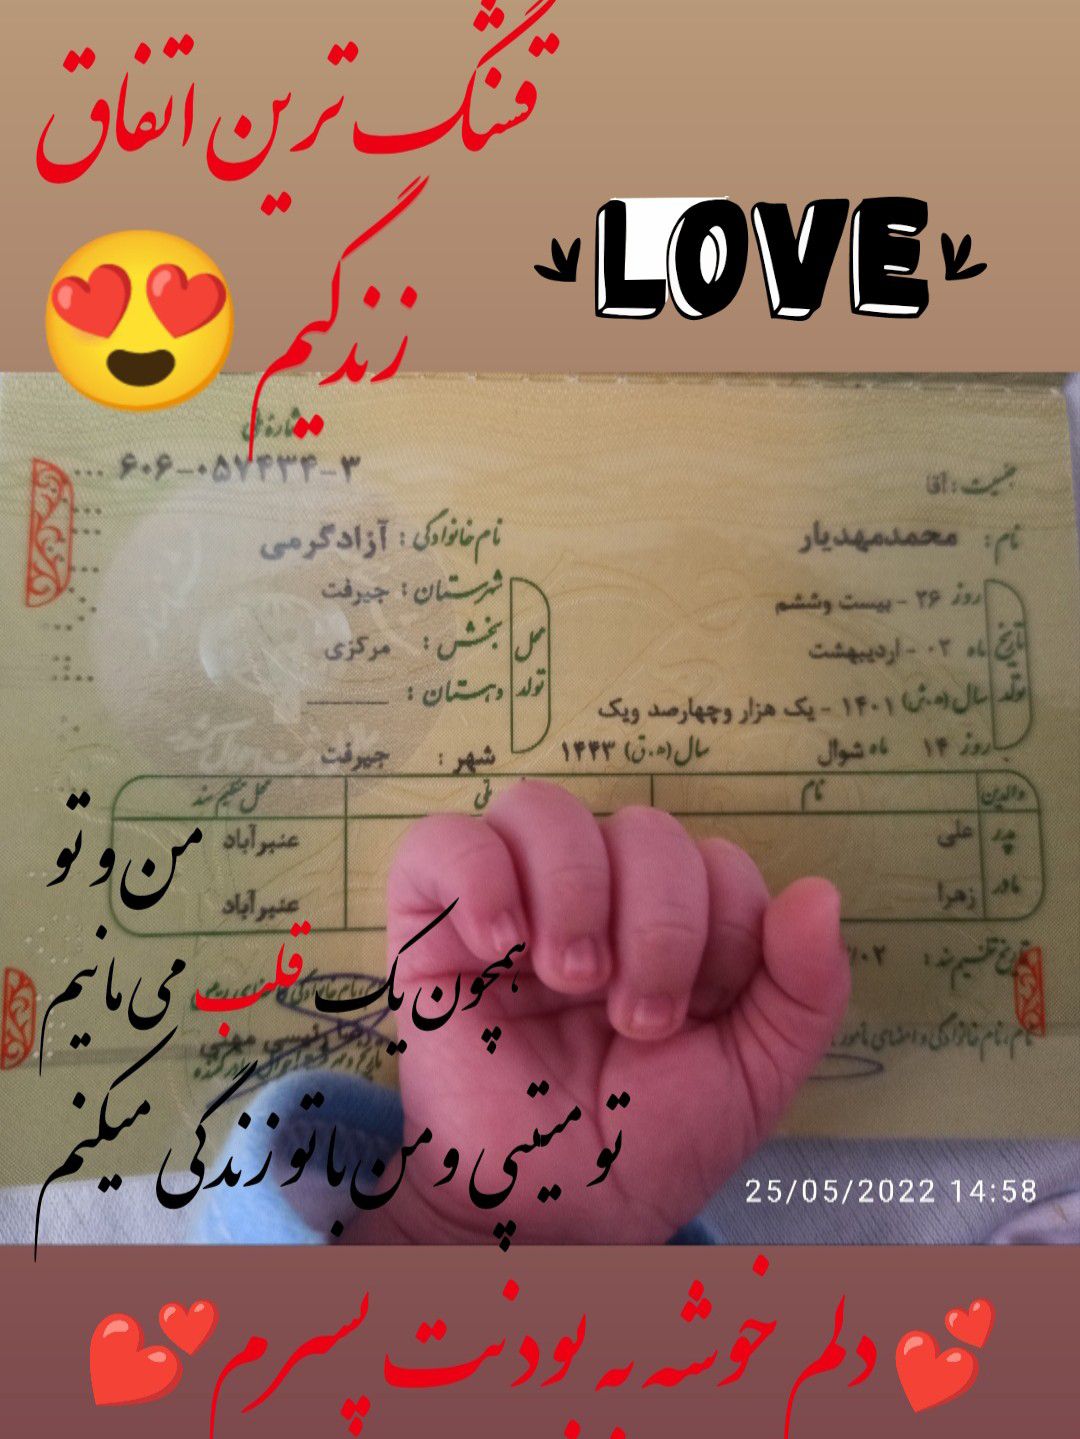 قشنگ ترین اتفاق
زندگیم
LOVE
شماره ملی
۶۰۶-۰۵۷۴۳۴-۳
جنسیت: آقا
نام: محمدمهدیار
نام خانوادگی: آزادگرمی
تاریخ تولد
روز ۲۶ - بیست وششم
ماه ۰۲ - اردیبهشت
سال (ه.ش) ۱۴۰۱ - یک هزار وچهارصد ویک
روز ۱۴ ماه شوال سال (ه.ق) ۱۴۴۳
محل تولد
شهرستان: جیرفت
بخش: مرکزی
دهستان:
شهر: جیرفت
والدین نام ملی محل تنظیم سند
پدر علی عنبرآباد
مادر زهرا عنبرآباد
تاریخ تنظیم سند: /۰۲
نام، نام خانوادگی و امضای مأمور
من و تو
همچون یک قلب می مانیم
تو میتپی و من با تو زندگی میکنم
25/05/2022 14:58
دلم خوشه به بودنت پسرم